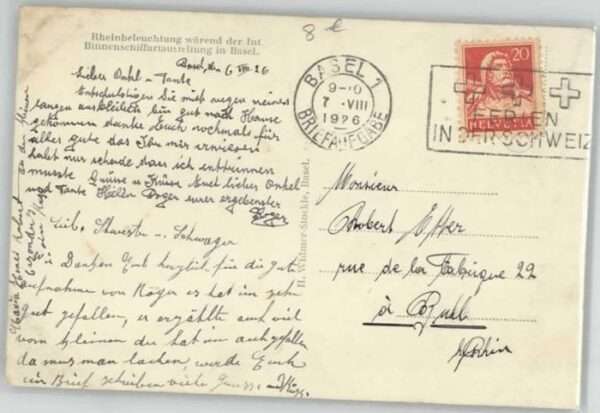 Rheinbeleuchtung wärend der Int.
Binnenschiffartausstellung in Basel.
8
Basel, den 6 VIII 26
Lieber Onkel u Tante
Entschuldigen Sie mich wegen meines
langen ausbleiben bin gut nach Hause
gekommen danke Euch nochmals für
alles gute das Ihr mir erwiesen
habt nur schade dass ich
musste Grüsse u Küsse Euch lieber Onkel
und Tante Roger eurer ergebenster
Roger
Lieb. Schwester u Schwager
Danken Euch herzlich für die gute
Aufnahme von Roger es hat im sehr
gut gefallen, er erzählte auch viel
vom kleinen das hat im auch gefallen
da mus man lachen, werde Euch
ein Brief schreiben viele
H. Widmer-Stockle, Basel.
BASEL 1
9-10
7-VIII
1926
BRIEFAUFGABE
20
HELVETIA
FERIEN
IN DER SCHWEIZ
Monsieur
Robert
rue de la Fabrique 22
à